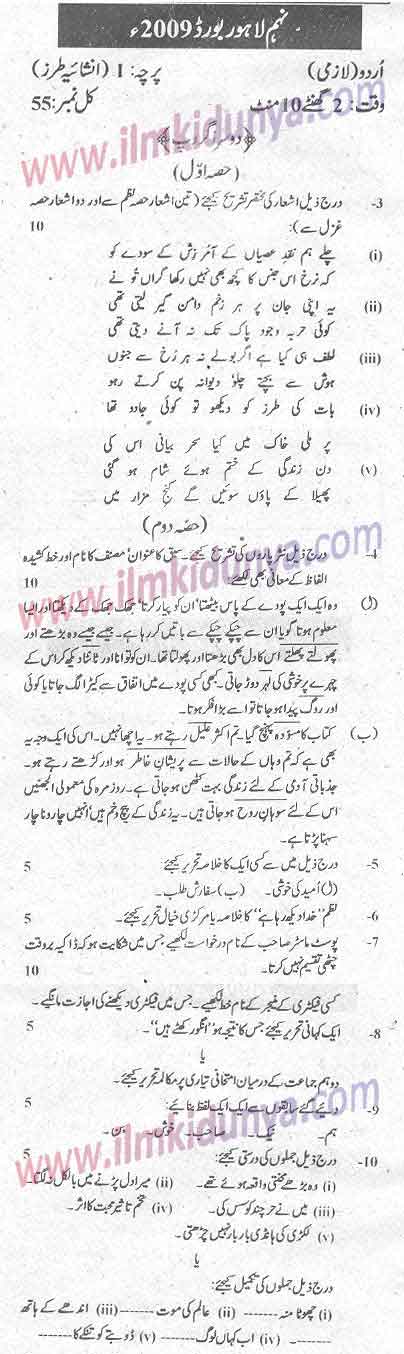 نہم لاہور بورڈ 2009ء
اُردو (لازمی)   پرچہ: I (انشائیہ طرز)
وقت: 2 گھنٹے 10 منٹ   کل نمبر: 55
www.ilmkidunya.com
﴿دوسرا گروپ﴾
(حصہ اوّل)
3- درج ذیل اشعار کی مختصر تشریح کیجئے (تین اشعار حصہ نظم سے اور دو اشعار حصہ
غزل سے): 10
(i) چلے ہم نقدِ عصیاں لے کے آمرزش کے سودے کو
کہ نرخ اس جنس کا کچھ بھی نہیں رکھا گراں تو نے
(ii) یہ اپنی جان پر ہر زخم دامن گیر لیتی تھی
کوئی حربہ وجود پاک تک نہ آنے دیتی تھی
(iii) لطف ہی کیا ہے اگر بولے نہ ہر رُخ سے جنوں
ہوش سے بچتے چلو دیوانہ پن کرتے رہو
(iv) بات کی طرز کو دیکھو تو کوئی جادو تھا
پر ملی خاک میں کیا سحر بیانی اس کی
(v) دن زندگی کے ختم ہوئے شام ہو گئی
پھیلا کے پاؤں سوئیں گے کنج مزار میں
(حصہ دوم)
4- درج ذیل نثر پاروں کی تشریح کیجئے۔ سبق کا عنوان' مصنف کا نام اور خط کشیدہ
الفاظ کے معانی بھی لکھئے: 10
www.ilmkidunya.com
(ا) وہ ایک ایک پودے کے پاس بیٹھتا' ان کو پیار کرتا' جھک جھک کے دیکھتا اور ایسا
معلوم ہوتا گویا ان سے چپکے چپکے باتیں کر رہا ہے۔ جیسے جیسے وہ بڑھتے اور
پھولتے پھلتے اس کا دل بھی بڑھتا اور پھولتا تھا۔ ان کو توانا اور ٹانٹا دیکھ کر اس کے
چہرے پر خوشی کی لہر دوڑ جاتی۔ کبھی کسی پودے میں اتفاق سے کیڑا لگ جاتا یا کوئی
اور روگ پیدا ہو جاتا تو اسے بڑا فکر ہوتا۔
(ب) کتاب کا مسودہ پہنچ گیا۔ تم اکثر علیل رہتے ہو۔ یہ اچھا نہیں۔ اس کی ایک وجہ یہ
بھی ہے کہ تم وہاں کے حالات سے پریشانِ خاطر ہو اور کڑھتے رہتے ہو۔
جذباتی آدمی کے لئے زندگی بہت کٹھن ہو جاتی ہے۔ روزمرہ کی معمولی الجھنیں
اس کے لئے سوہانِ روح ہو جاتی ہیں۔ یہ زندگی کے پیچ و خم ہیں' انہیں چاروناچار
سہنا پڑتا ہے۔
5- درج ذیل میں سے کسی ایک کا خلاصہ تحریر کیجئے 5
(ا) اُمید کی خوشی۔ (ب) سفارش طلب۔
6- نظم "خدا دیکھ رہا ہے" کا خلاصہ یا مرکزی خیال تحریر کیجئے۔ 5
7- پوسٹ ماسٹر صاحب کے نام درخواست لکھیے جس میں شکایت ہو کہ ڈاکیہ بروقت
چٹھی تقسیم نہیں کرتا۔ 10
کسی فیکٹری کے منیجر کے نام خط لکھیے۔ جس میں فیکٹری دیکھنے کی اجازت مانگیے۔
8- ایک کہانی تحریر کیجئے جس کا نتیجہ ہو "انگور کھٹے ہیں"۔ 5
یا
دو ہم جماعت کے درمیان امتحانی تیاری پر مکالمہ تحریر کیجئے۔
9- دیئے گئے سابقوں سے ایک ایک لفظ بنائیے: 5
ہم۔ نیک۔ صاحب۔ خوش۔ بن۔
10- درج ذیل جملوں کی درستی کیجئے: 5
www.ilmkidunya.com
(i) وہ بڑے محنتی واقع ہوئے تھے۔ (ii) میرا دل پڑنے میں بالکل نہ لگتا۔
(iii) میں نے ہر چند کوسس کی۔ (iv) تخم تاثیر محبت کا اثر۔
(v) لکڑی کی ہانڈی بار بار نہیں چڑھتی۔
یا
درج ذیل جملوں کی تکمیل کیجئے:
(i) چھوٹا منہ ------- (ii) عالم کی موت ------- (iii) اندھے کے ہاتھ
------- (iv) اب کہاں لوگ ------- (v) ڈوبتے کو تنکے کا -------